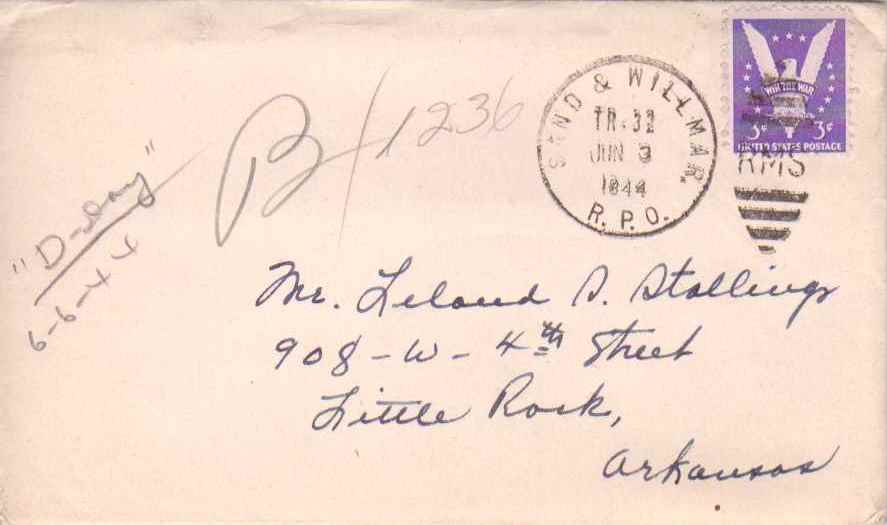 WIN THE WAR
3¢ 3¢
UNITED STATES POSTAGE
& WILLMAR.
TR. 32
JUN 3
1944
R.P.O.
RMS
B/1236
"D-Day"
6-6-44
Mr. Leland S. Stallings
908-W-4th Street
Little Rock,
Arkansas